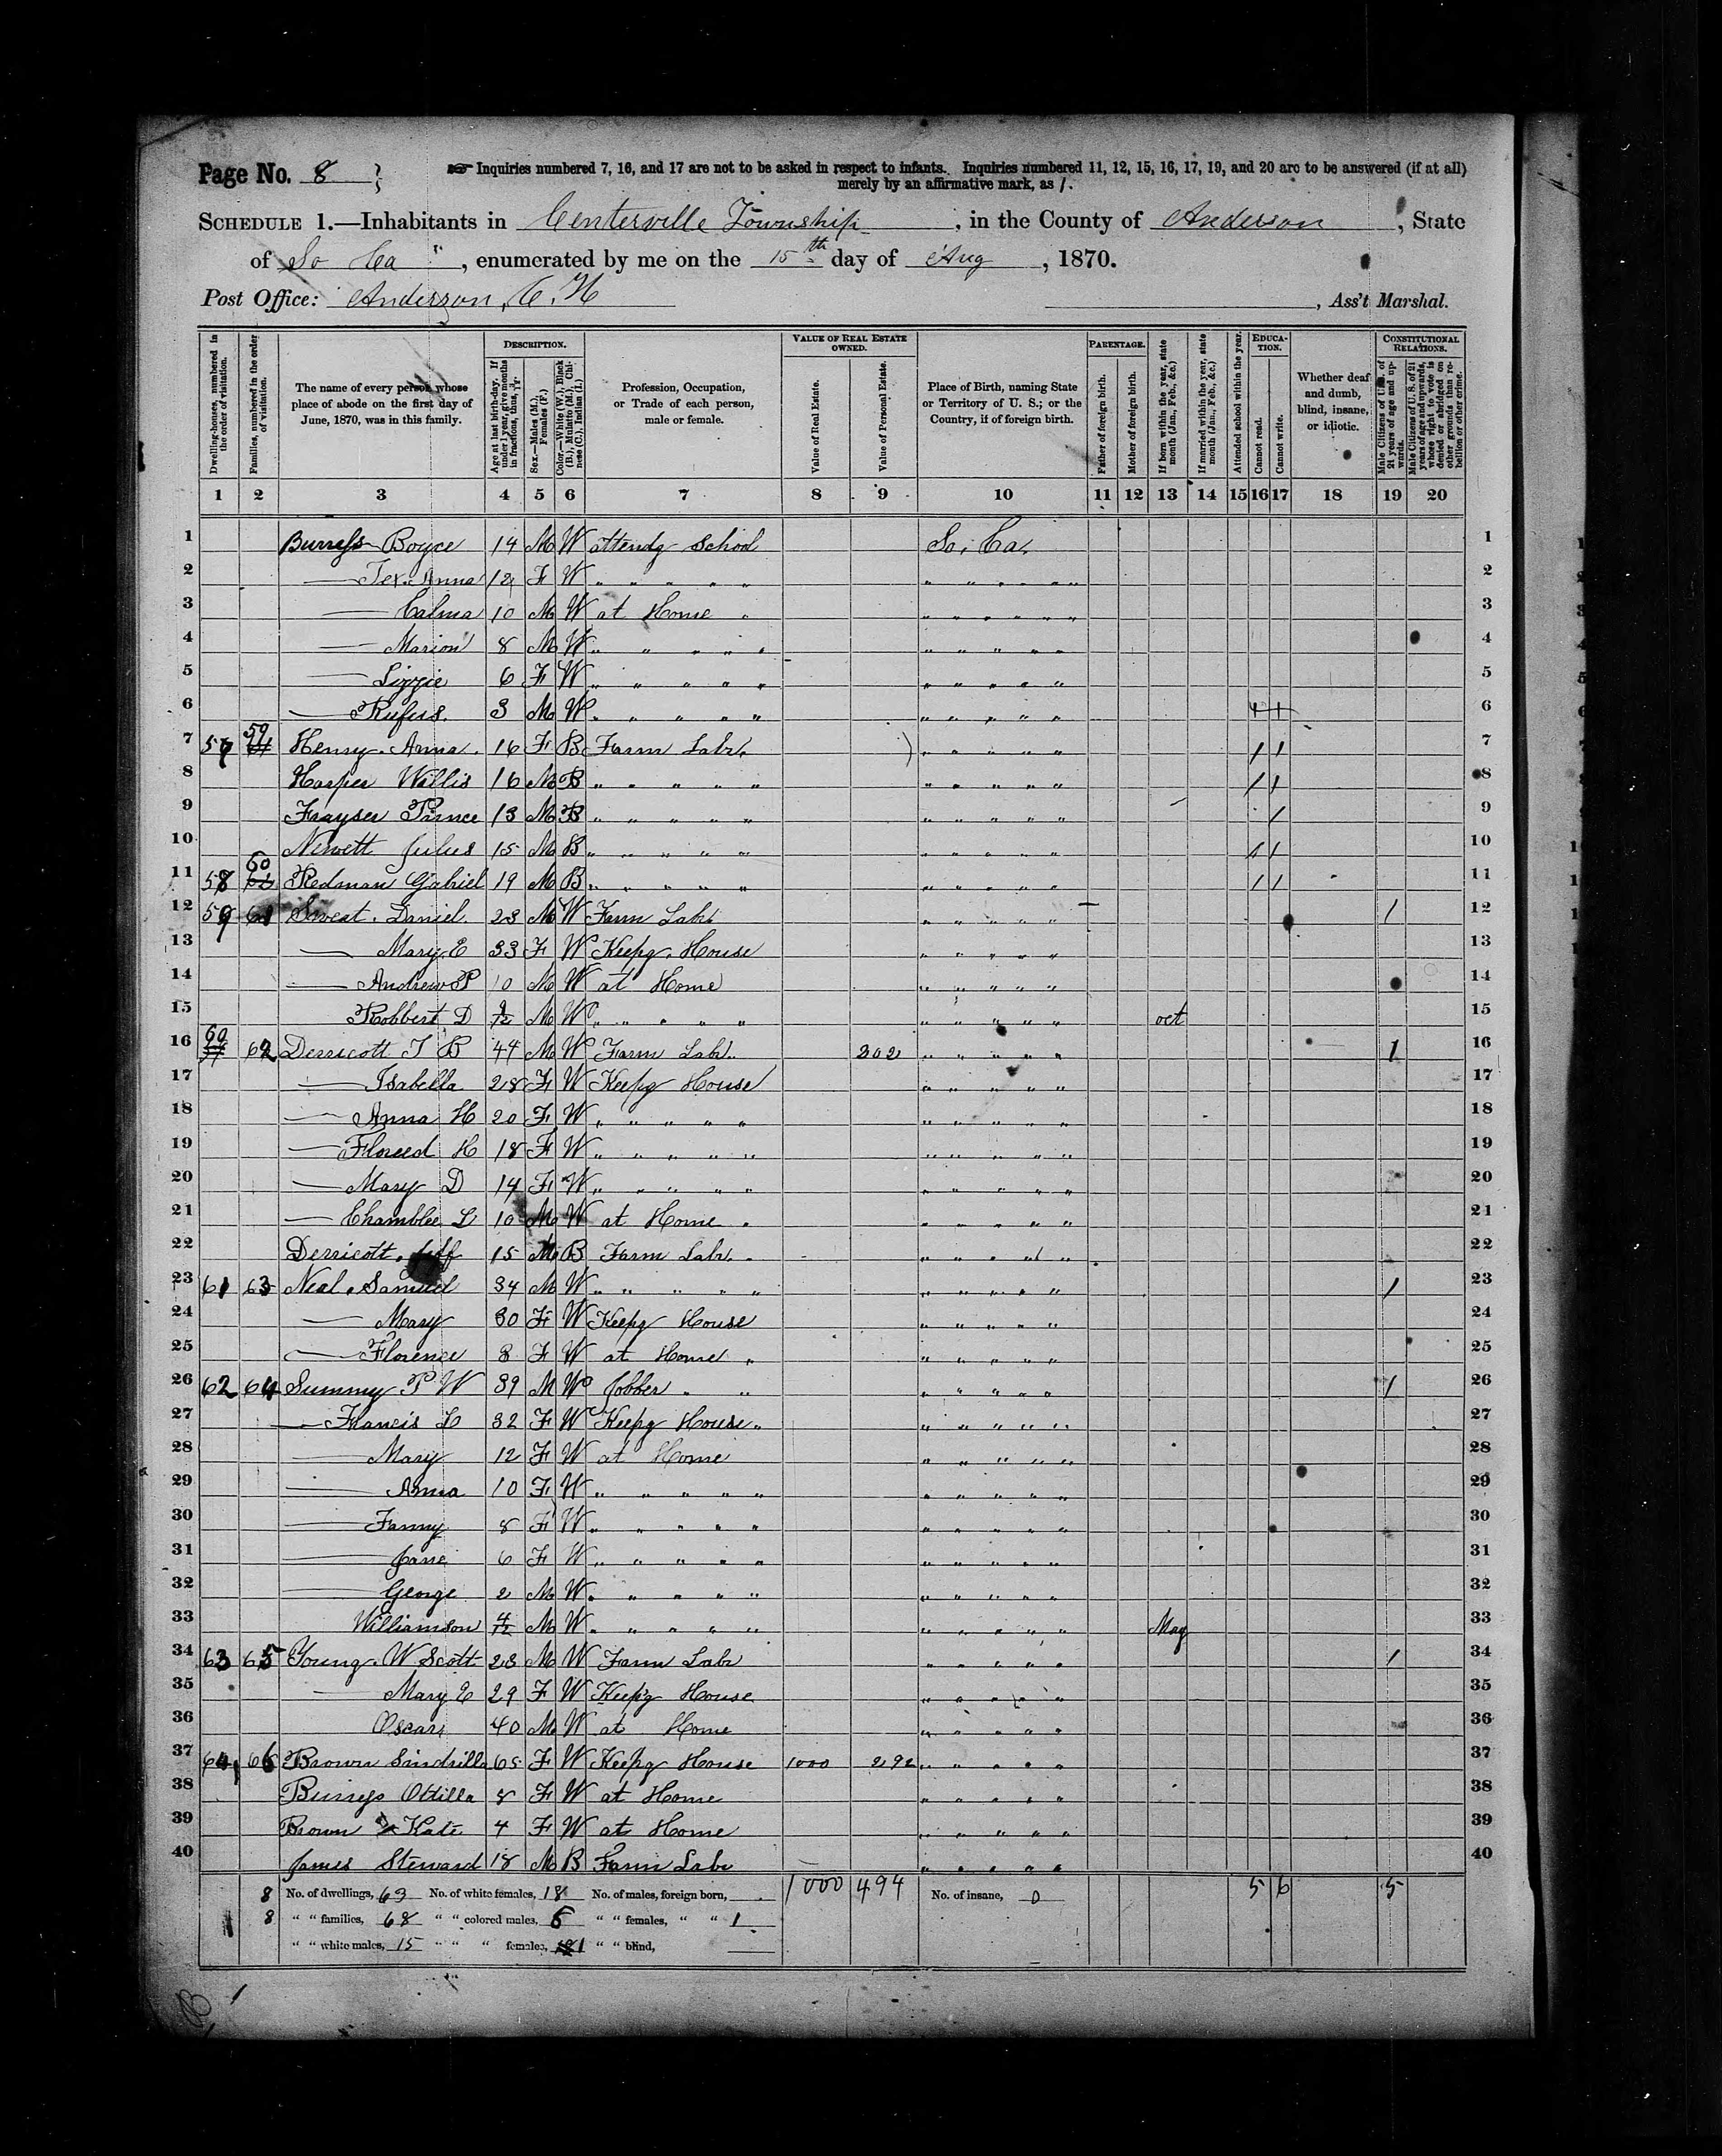 Page No. 8
☞ Inquiries numbered 7, 16, and 17 are not to be asked in respect to infants. Inquiries numbered 11, 12, 15, 16, 17, 19, and 20 are to be answered (if at all)
merely by an affirmative mark, as /.
SCHEDULE 1.—Inhabitants in Centerville Township, in the County of Anderson, State
of So Ca, enumerated by me on the 15th day of Aug, 1870.
Post Office: Anderson, C. H , Ass't Marshal.
DESCRIPTION. VALUE OF REAL ESTATE OWNED. PARENTAGE. EDUCATION. CONSTITUTIONAL RELATIONS.
Dwelling-houses, numbered in the order of visitation.
Families, numbered in the order of visitation.
The name of every person whose place of abode on the first day of June, 1870, was in this family.
Age at last birth-day. If under 1 year, give months in fractions, thus, 3/12.
Sex.—Males (M.), Females (F.)
Color.—White (W.), Black (B.), Mulatto (M.), Chinese (C.), Indian (I.)
Profession, Occupation, or Trade of each person, male or female.
Value of Real Estate.
Value of Personal Estate.
Place of Birth, naming State or Territory of U. S.; or the Country, if of foreign birth.
Father of foreign birth.
Mother of foreign birth.
If born within the year, state month (Jan., Feb., &c.)
If married within the year, state month (Jan., Feb., &c.)
Attended school within the year.
Cannot read.
Cannot write.
Whether deaf and dumb, blind, insane, or idiotic.
Male Citizens of U.S. of 21 years of age and upwards.
Male Citizens of U.S. of 21 years of age and upwards, whose right to vote is denied or abridged on other grounds than rebellion or other crime.
1 2 3 4 5 6 7 8 9 10 11 12 13 14 15 16 17 18 19 20
1 Burress Boyce 14 M W attendg School So, Ca. 1
2 — Tex. Anna 12 F W " " " " " " " " " " 2
3 — Calma 10 M W at Home " " " " " " 3
4 — Marion 8 M W " " " " " " " " " " 4
5 — Lizzie 6 F W " " " " " " " " " " 5
6 — Rufus 3 M W " " " " " " " " " " 6
7 57 59 Henry Anna 16 F B Farm Labr. " " " " " / / 7
8 Harper Willis 16 M B " " " " " " " " " " / / 8
9 Frayser Prince 13 M B " " " " " " " " " " / 9
10 Newett Julus 15 M B " " " " " " " " " " / / 10
11 58 60 Redman Gabriel 19 M B " " " " " " " " " " / / 11
12 59 61 Sweat Daniel 23 M W Farm Labr " " " " " / 12
13 — Mary E 33 F W Keepg House " " " " " 13
14 — Andrew P 10 M W at Home " " " " " 14
15 Robbert D 9/12 M W " " " " " " " " " " oct 15
16 60 62 Derricott J B 44 M W Farm Labr. 202 " " " " " / 16
17 — Isabella 28 F W Keepg House " " " " " 17
18 — Anna H 20 F W " " " " " " " " " " 18
19 — H 18 F W " " " " " " " " " " 19
20 — Mary D 14 F W " " " " " " " " " " 20
21 — Chamblee L 10 M W at Home " " " " " 21
22 Derricott, Jeff 15 M B Farm Labr. " " " " " 22
23 61 63 Neal, Samuel 34 M W " " " " " " " " " " / 23
24 — Mary 30 F W Keepg House " " " " " 24
25 — Florence 8 F W at Home " " " " " 25
26 62 64 Summy P W 39 M W Jobber " " " " " / 26
27 — Francis L 32 F W Keepg House " " " " " 27
28 — Mary 12 F W at Home " " " " " 28
29 — Anna 10 F W " " " " " " " " " " 29
30 — Fanny 8 F W " " " " " " " " " " 30
31 — Jane 6 F W " " " " " " " " " " 31
32 — George 2 M W " " " " " " " " " " 32
33 Williamson 4/12 M W " " " " " " " " " " May 33
34 63 65 Young W Scott 23 M W Farm Labr " " " " " / 34
35 — Mary E 29 F W Keep'g House " " " " " 35
36 Oscar 40 M W at Home " " " " " 36
37 64 66 Brown Sindrilla 65 F W Keepg House 1000 292 " " " " " 37
38 Burress Ottilla 8 F W at Home " " " " " 38
39 Brown Kate 4 F W at Home " " " " " 39
40 James Steward 18 M B Farm Labr " " " " " 40
8 No. of dwellings, 63 No. of white females, 18 No. of males, foreign born, 1000 494 No. of insane, 0 5 6 5
8 " " families, 68 " " colored males, 6 " " females, " " 1
" " white males, 15 " " " females, 1 " " blind,